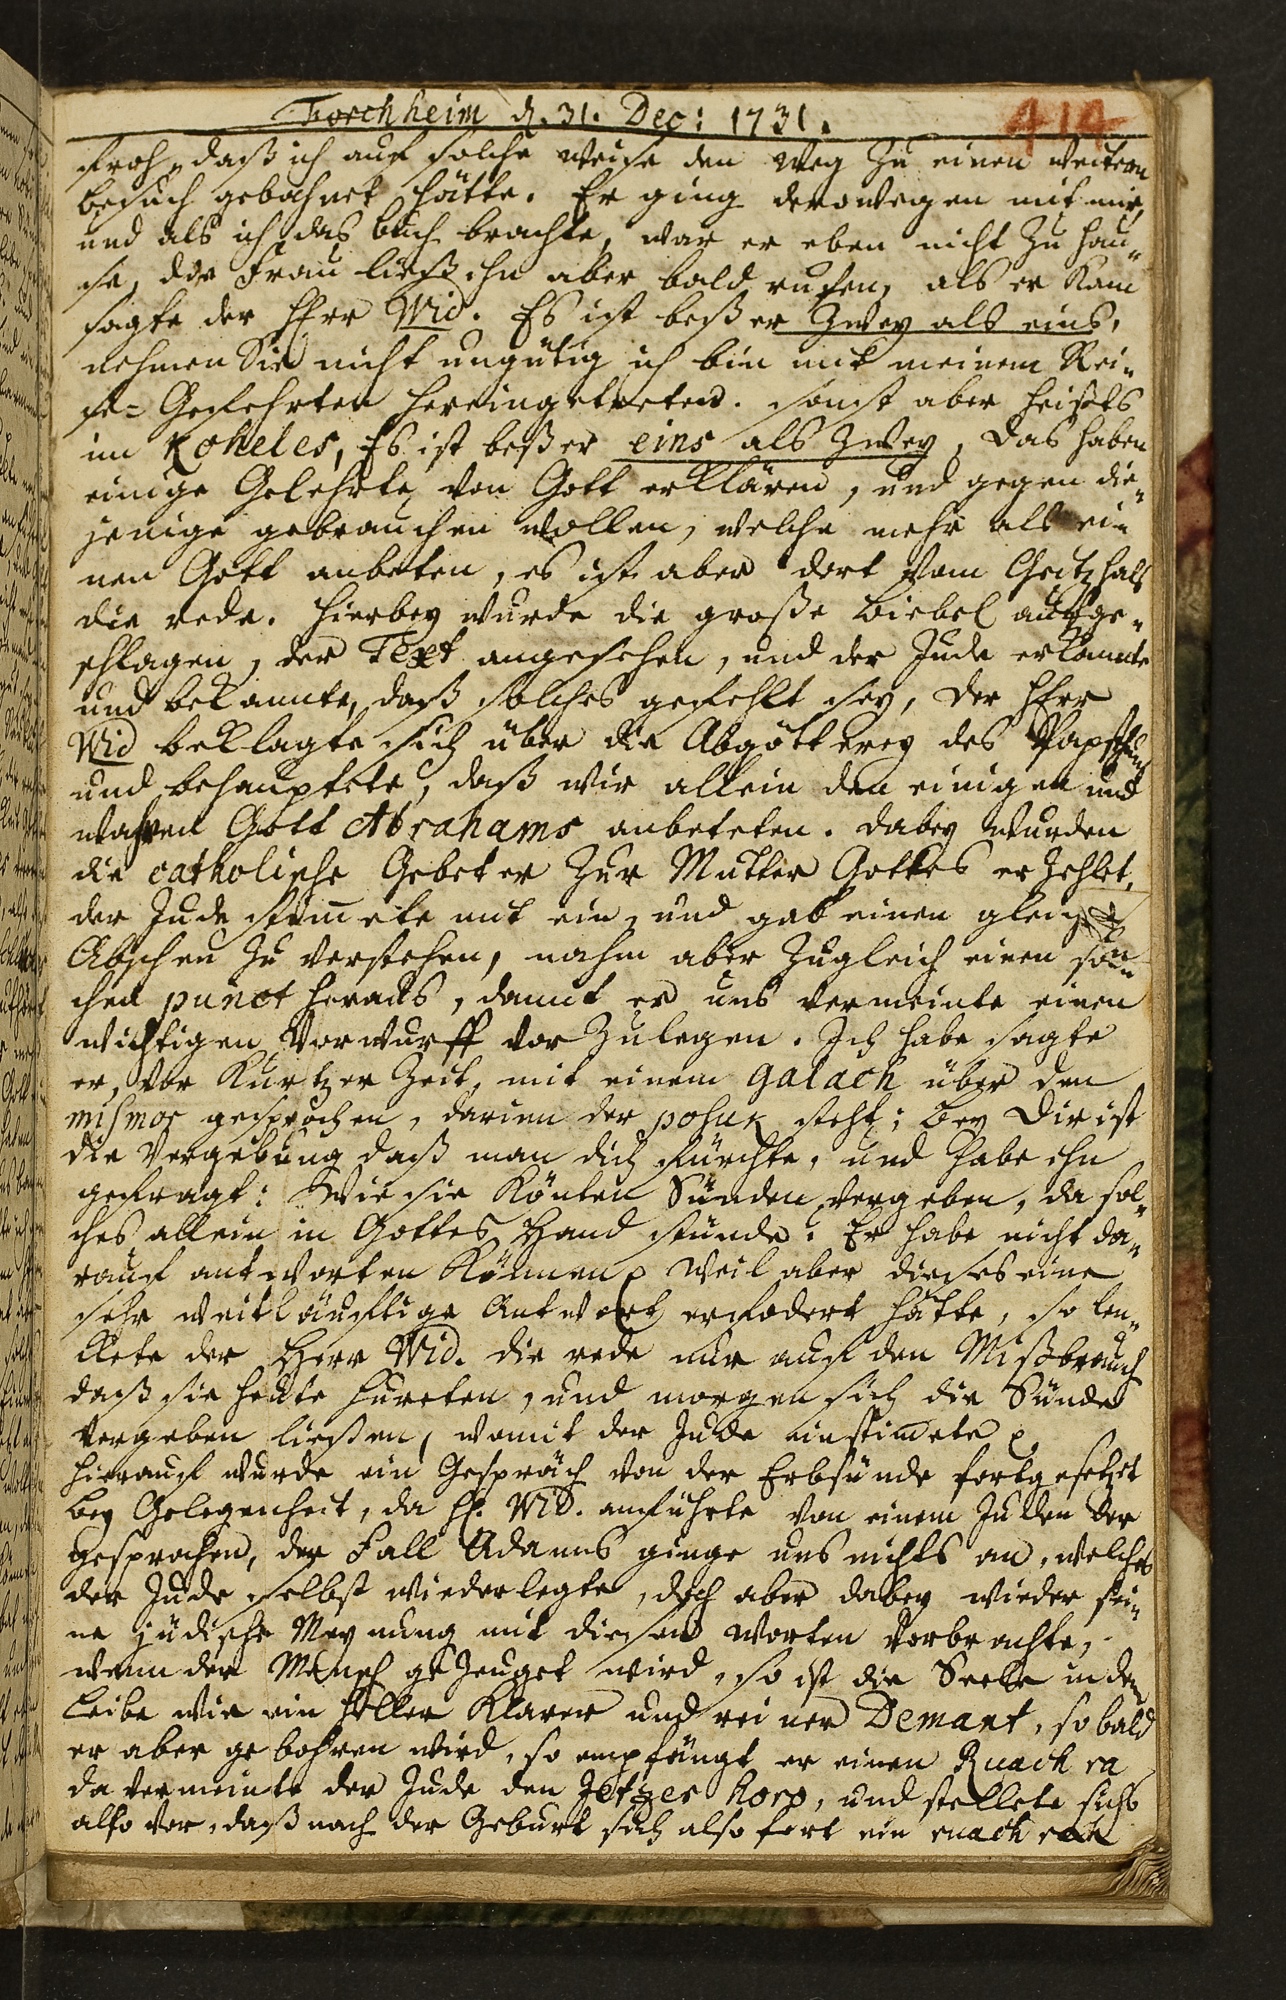 Forchheim d. 31. Dec: 1731.
414
froh, daß ich auf solche weise den weg zu einen weitern
besuch gebahnet hätte. Er ging derowegen mit mir,
und als ich das buch brachte, war er eben nicht zu hau„
se, die Frau ließ ihn aber bald rufen, als er kam
sagte der Herr Wid. Es ist beßer zwey als eins,
nehmen Sie nicht ungütig ich bin mit meinem Rei„
se= Gefehrten hereingetreten. sonst aber heists
im Koheles, Es ist beßer eins als zwey, das haben
einige Gelehrte von Gott erklären, und gegen die„
jenige gebrauchen wollen, welche mehr als ei„
nen Gott anbeten, es ist aber dort vom Geitzhals
die rede. hierbey wurde die große biebel aufge„
schlagen, der Text angesehen, und der Jude erkannte
und bekannte, daß solches gefehlt sey, der Herr
Wid beklagte sich über die Abgötterey des Papsthums
und behauptete, daß wir allein den einigen und
wahren Gott Abrahams anbeteten. dabey wurden
die catholische Gebeter zur Mutter Gottes erzehlet,
der Jude stim̅ete mit ein, und gab einen gleichen
Abscheu zu verstehen, nahm aber zugleich einen sol„
chen punct heraus, damit er uns vermeinte einen
wichtigen Vorwurff vor zulegen. Ich habe sagte
er, vor kurtzer Zeit, mit einem galach über den
mismor gesprochen, darinn der posuk steht; bey Dir ist
die Vergebung daß man dich fürchte, und habe ihn
gefragt: Wie sie könten Sünden vergeben, da sol„
ches allein in Gottes Hand stünde? Er habe nicht da„
rauf antworten können weil aber dieses eine
sehr weitläuftige Antwort erfodert hätte, so len„
ckete der Herr Wid. die rede nur auf den Mißbrauch
daß sie heute hureten, und morgen sich die Sünde
vergeben ließen, womit der Jude einstim̅ete
hierauf wurde ein Gespräch von der Erbsünde fortgesetzet
bey Gelegenheit, da H. Wid. anführte von einem Juden der
gesprochen, der Fall Adams ginge uns nichts an, welches
der Jude selbst wiederlegte, doch aber dabey wieder sei„
ne jüdische Meynung mit diesen worten vorbrachte,
wenn der Mensch gezeuget wird, so ist die Seele in dem
Leibe wie ein heller klarer und reiner Demant, so bald
er aber gebohren wird, so empfängt er einen Ruach ra
da vermeinte der Jude den Jetzer hora, und stellete sichs
also vor, daß nach der Geburt sich also fort ein ruach rah